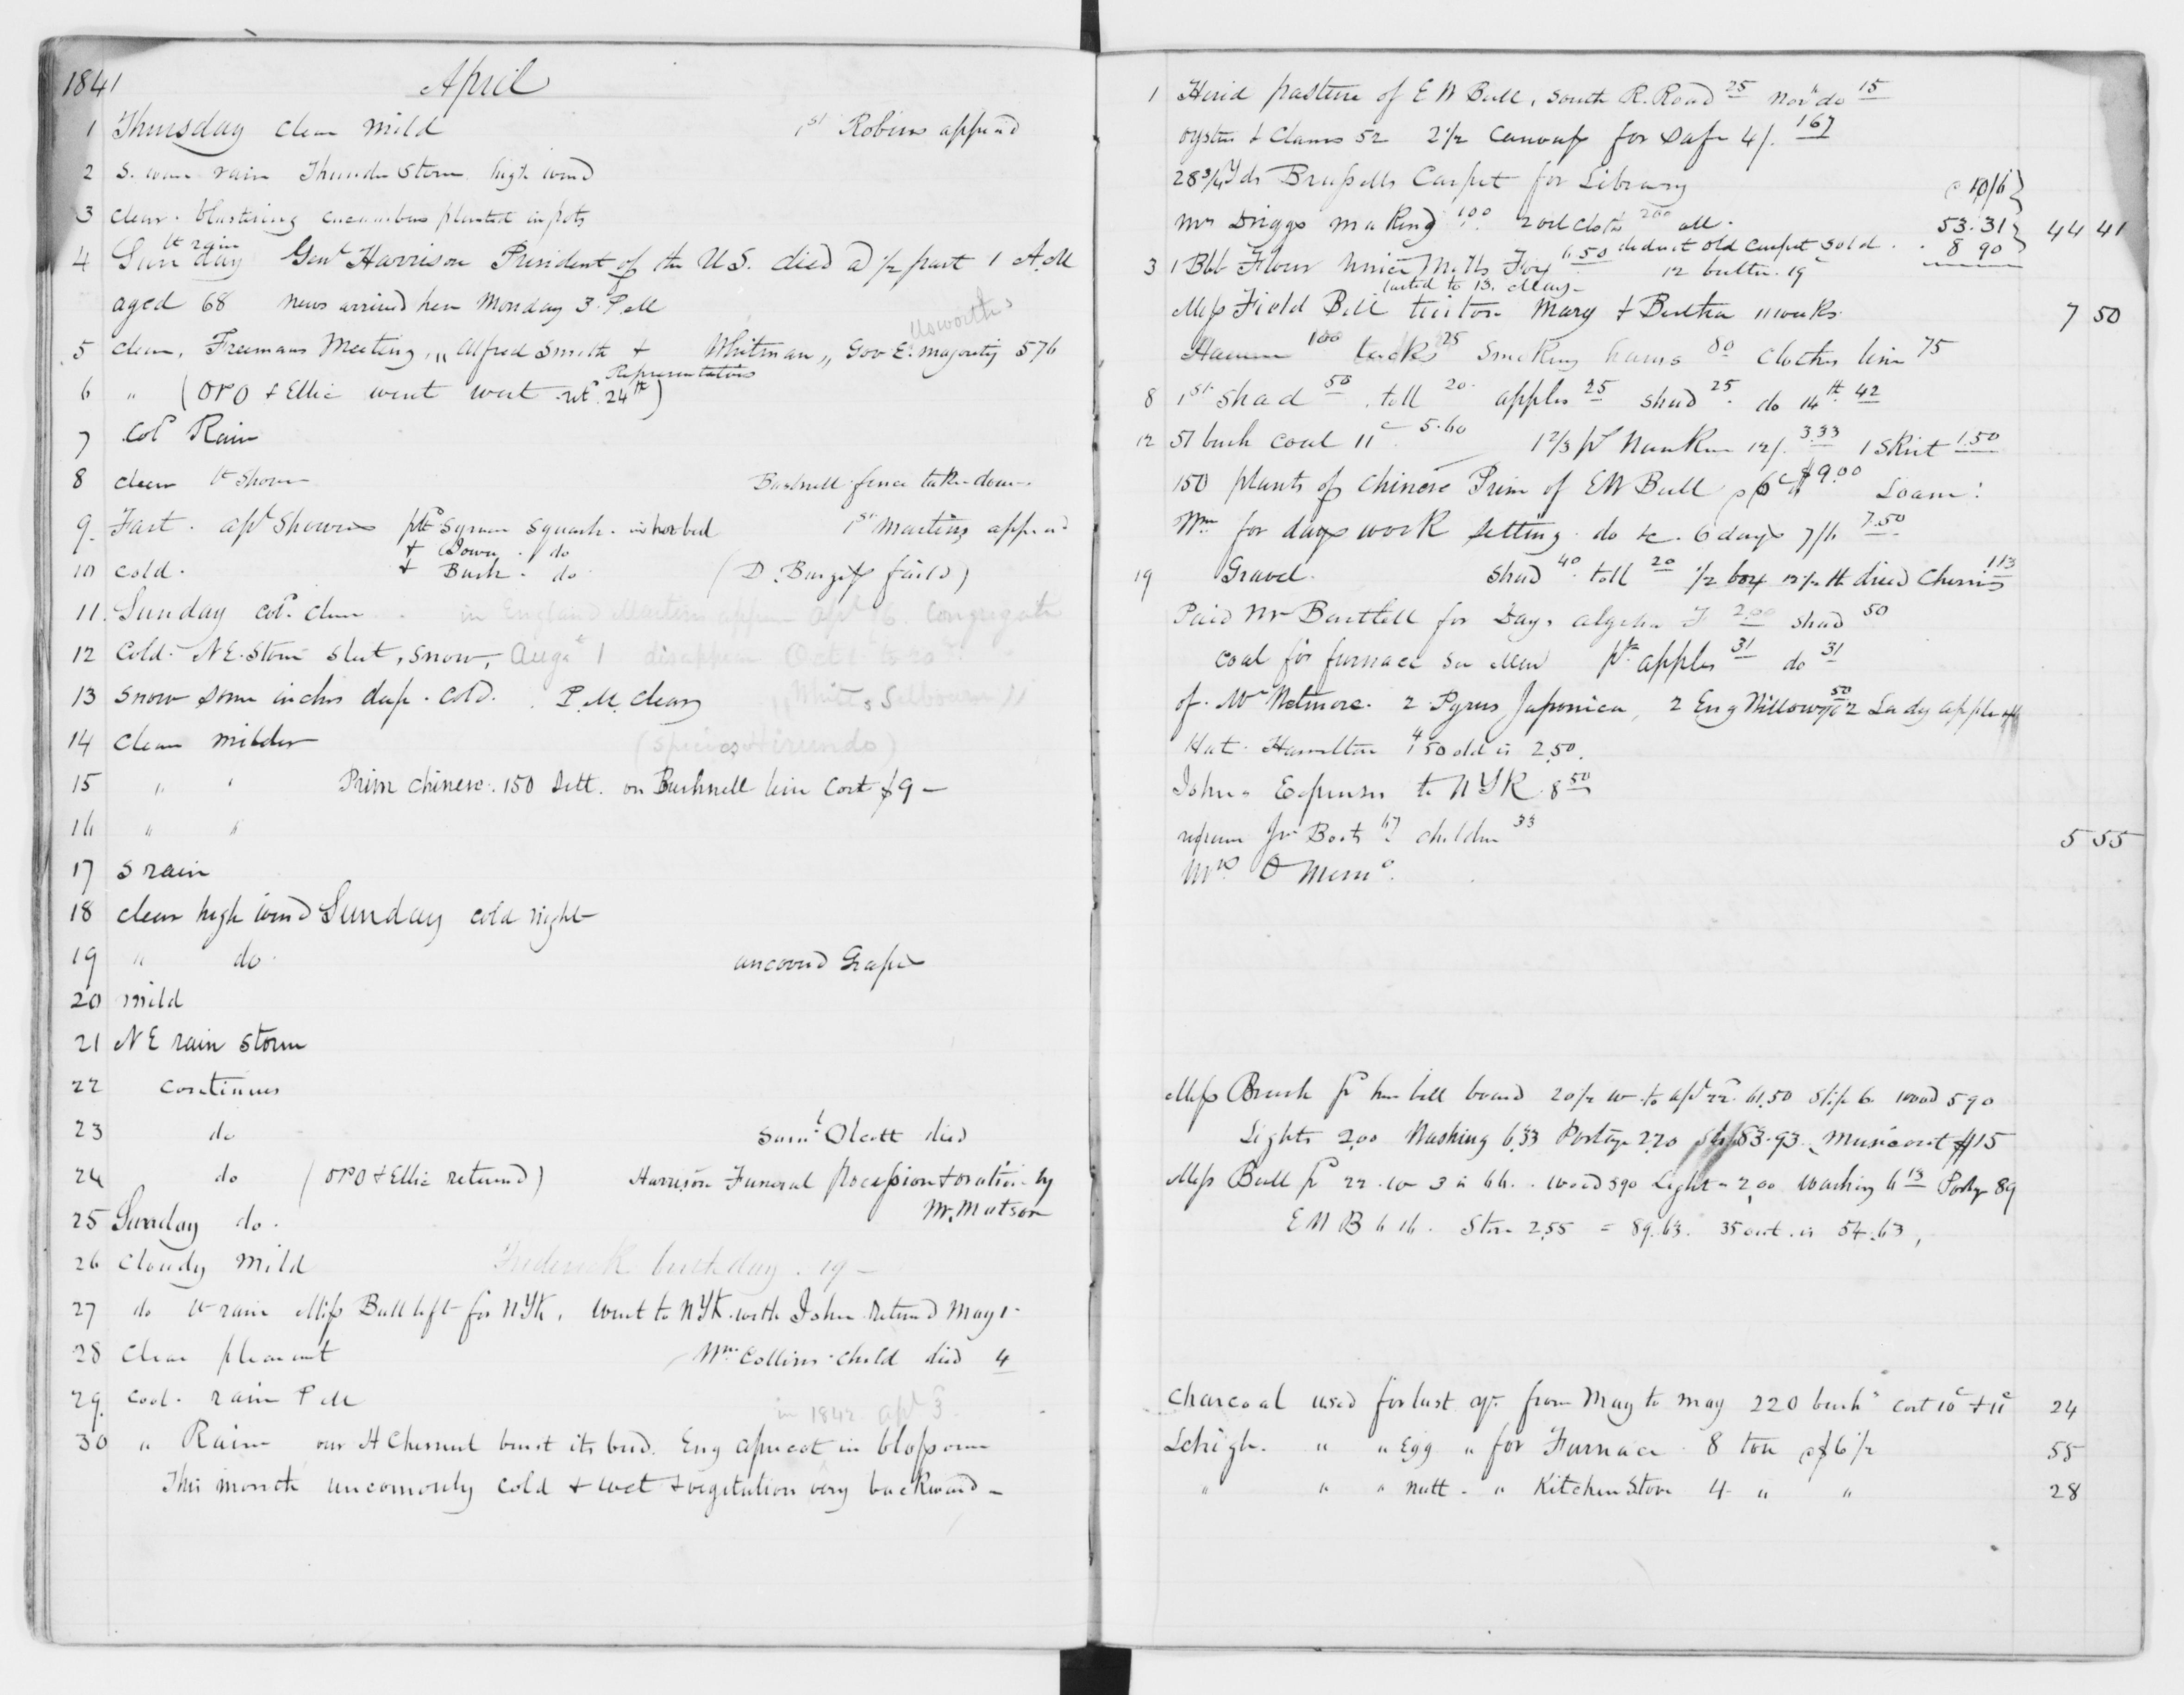 1841 April
1 Thursday clear mild 1st Robins appeard
2 S. warm rain Thunder Storm high wind
3 clear. blustering cucumbers planted in pots
lt rain
4 Sunday Genl Harrison President of the U.S. died a 1/2 past 1 A.M
aged 68 news arrived here Monday 3. P.M
Elsworths
5 clear, Freemans Meeting, „ Alfred Smith & Whitman „ Gov E. majority 576
Representatives
6 " (OPO & Ellic went west ret. 24th)
7 Cold Rain
8 clear lt Shower Bushnell fence taken down
9. Fast. apl Showers ptd Syrian Squash. in hot bed 1st Martins appeard
& Down. do
10 cold. & Bush. do (D. Burgess faild)
11. Sunday cold. clear in England Martins appear Apl 16. Congregate
12 Cold. N.E. Storm sleet, snow, Augst 1 disappear Oct 6 to 20
13 Snow some inches deep. cold. P.M. Clear „ White's Selbourne „
14 Clear milder (species Hirundo)
15 " " Prim Chinese. 150 Sett. on Bushnell line Cost $9 —
16 " "
17 S rain
18 clear high wind Sunday cold night
19 " do uncoverd Grapes
20 mild
21 N E rain Storm
22 continues
23 do Saml Olcott died
24 do (OPO & Ellic returned) Harrison Funeral procession & oration by
Mr. Matson
25 Sunday do.
26 Cloudy mild Frederick birthday. 19 —
27 do lt rain Miss Bull left for NYk, went to NYk with John returnd May 1
28 Clear pleasant Wm Collins child died 4
29. Cool. rain P M
in 1842 apl 3.
30 " Rain our H Chesnut burst its bud. Eng apricot in blossom
This month uncomonly cold & wet & vegetation very backward —
1 Hired pasture of E W Bull, South R. Road 25 Norn do 15
oysters & Clams 52 2 1/2 Canvass for Safe 4/. 167
28 3/4 Yds Brussells Carpet for Library @ 10/6
Mr Driggs making 100 2 oil cloths 200 all. 53.31 44 41
deduct old Carpet sold. 8 90
3 1 Bbl Flour 6.50 12 butter. 19
lasted to 13. May —
Miss Field Bill tuition Mary & Bertha 11 weeks 7 50
100 25 Smoking hams 80 Clothes line 75
8 1st Shad 50 toll 20 apples 25 shad 25 do 14th 42
12 51 bush coal 11c 5.60 1 2/3 ps Nankeen 12/. 3.33 1 Skirt 1.50
150 plants of Chinese Prim of E W Bull @ 6c $9.00 Loam:
Wm for days work Setting do &c. 6 days 7/6 7.50
19 Gravel. Shad 40 toll 20 1/2 box lb dried Cherries 113
Paid Mr Bartlett for Days algebra 2.00 shad 50
coal for furnace see Mem apples 31 do 31
of. Mr Wetmore. 2 Pyrus Japonica, 2 Eng Willows 50 2 Lady apples
Hat. Hamilton 4 50 old is 2.50.
Johns Expenses to NYK 8 50
Jr Boots 67 children 33 5 55
Mrs O Memo.
Miss Brush pd her bill board 20 1/2 w to apl 22. 61.50 Slip 6 wood 5 90
Lights 2.00 Washing 6.33 Postage 2.20 83.93. Music out $15
Miss Bull pd 22. w 3 is 66. wood 5 90 Lights 2.00 Washing 6 13 Postge 89
E W B 6 16. Store 2.55 = 89.63. 35 out. is 54.63,
Charcoal used for last yr from May to May 220 bushs cost 10c & 11c 24
Lehigh. " " Egg " for Furnace 8 ton @ $6 1/2 55
" " " nutt - " Kitchen Stove 4 " " 28